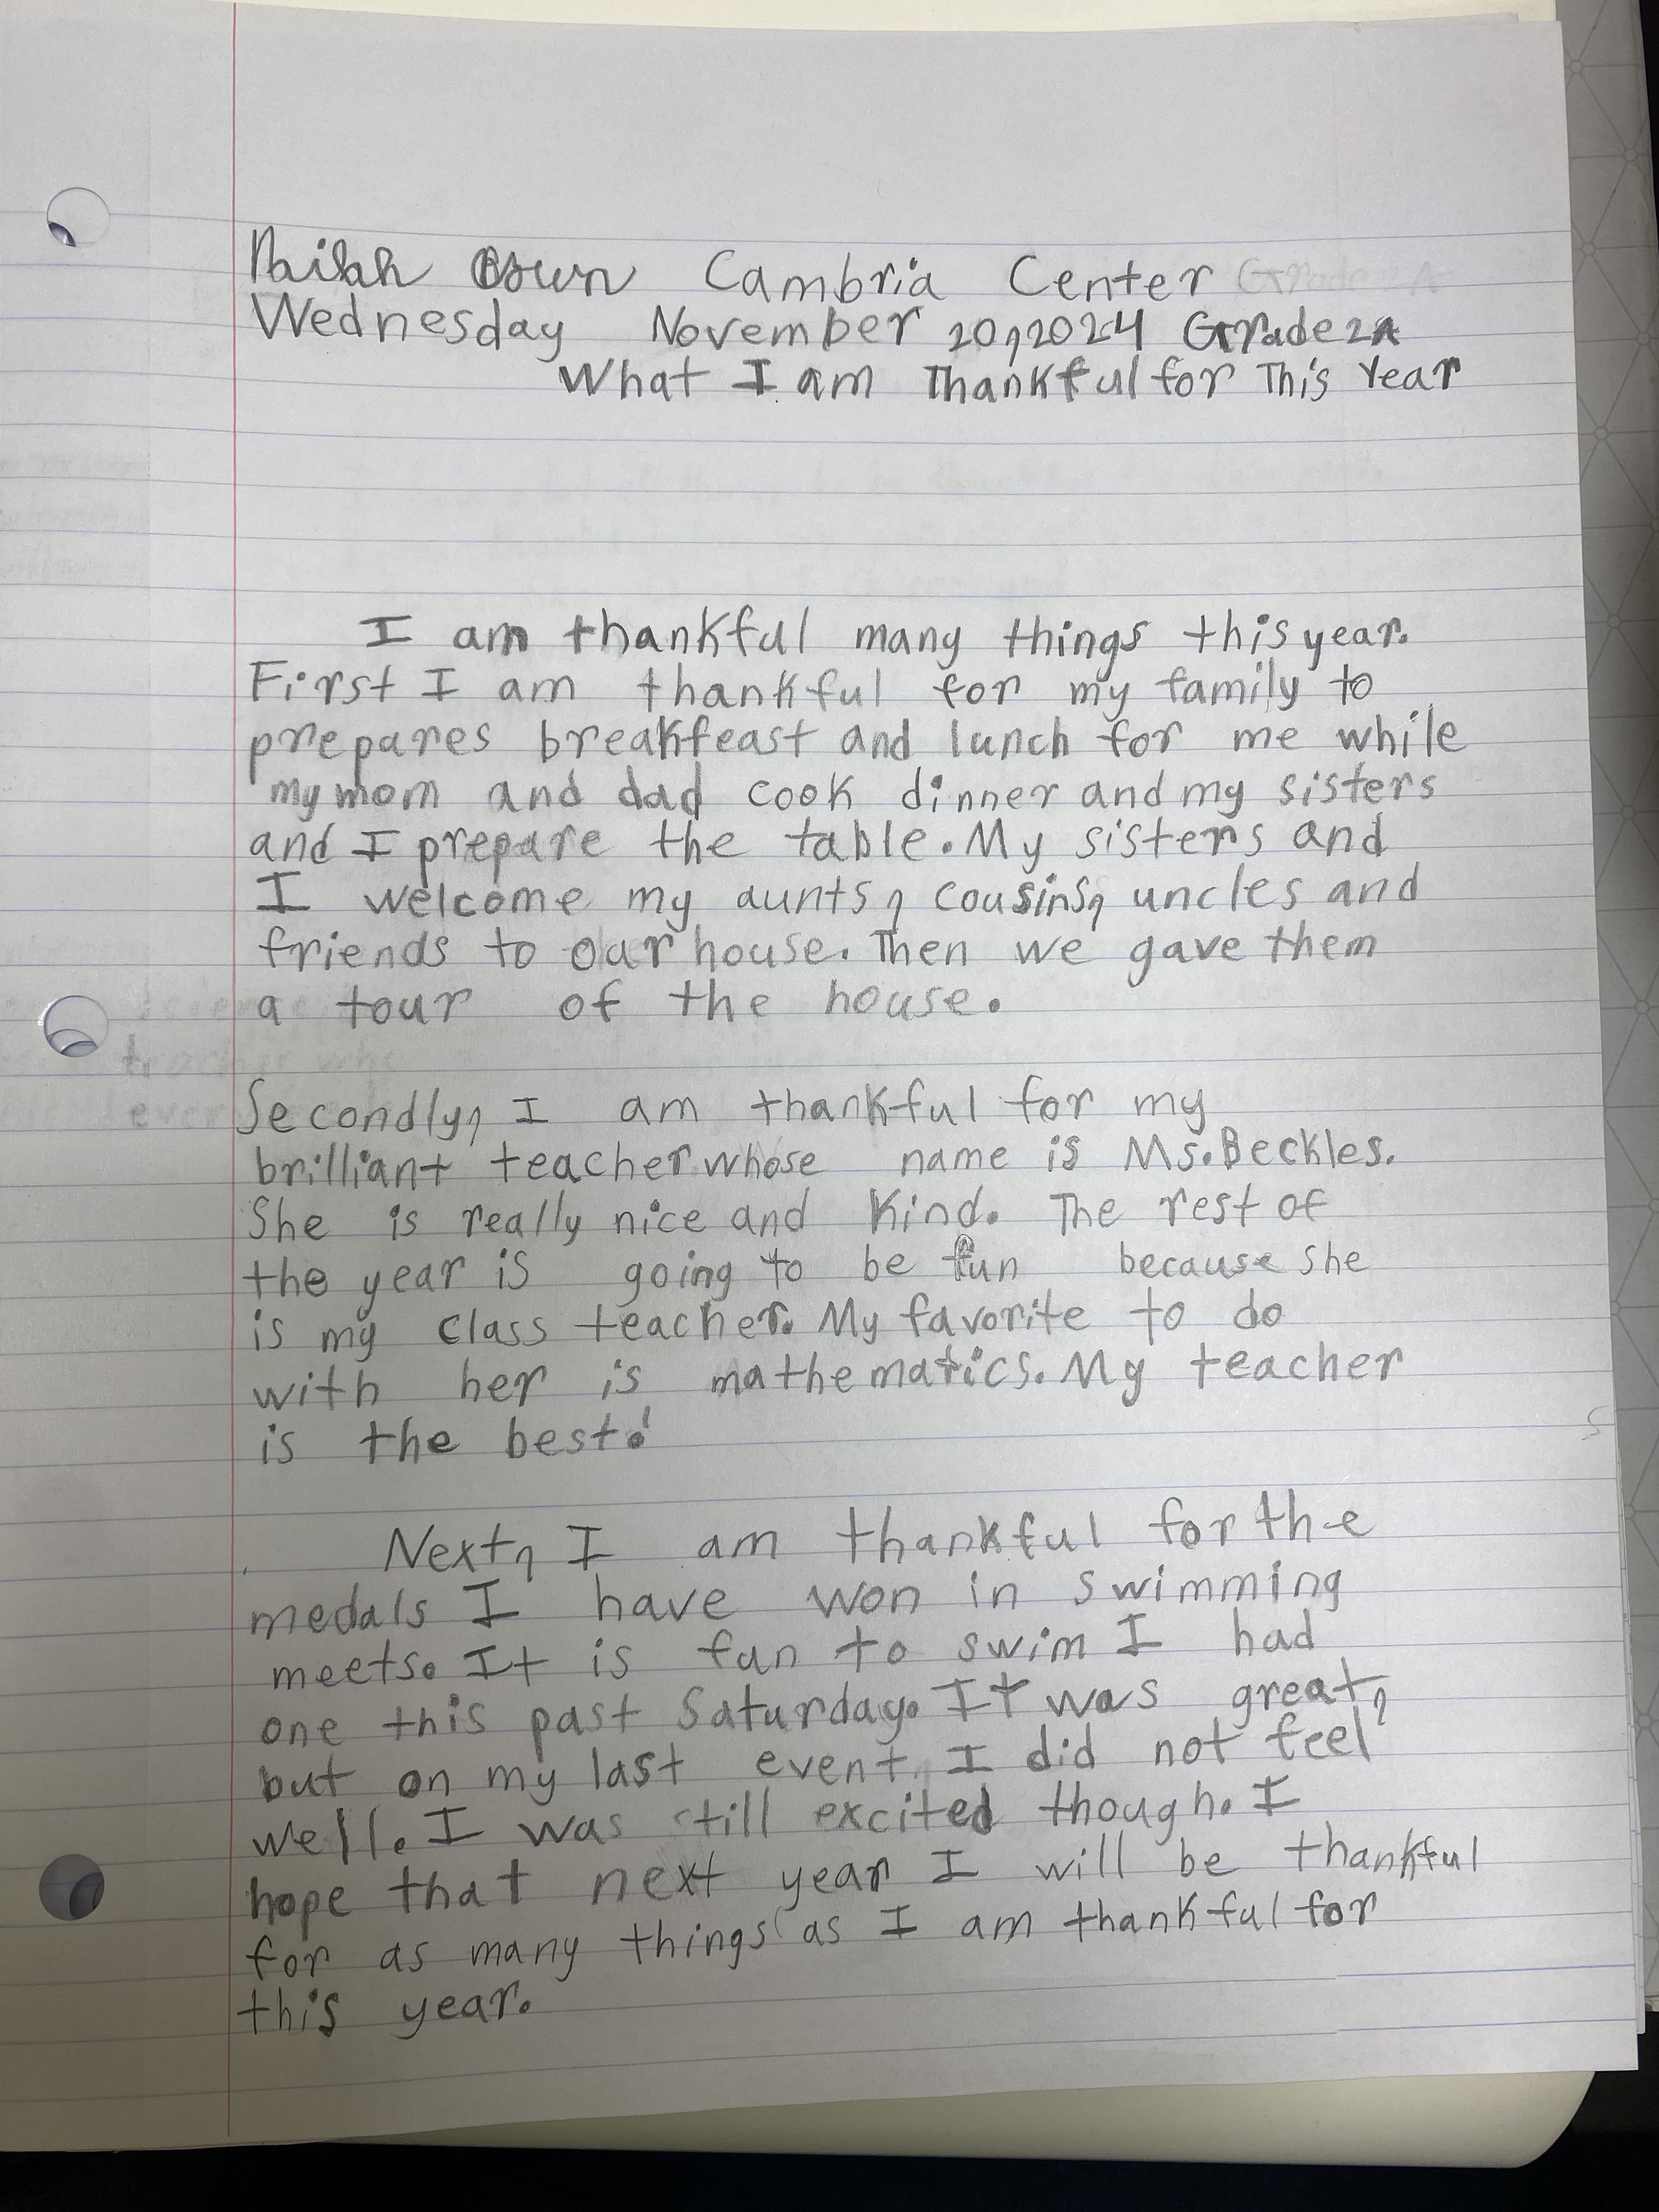 Cambria Center
Wednesday November 20, 2024 Grade 2A
What I am Thankful for This Year
I am thankful many things this year.
First I am thankful for my family to
prepares breakfeast and lunch for me while
my mom and dad cook dinner and my sisters
and I prepare the table. My sisters and
I welcome my aunts, cousins, uncles and
friends to our house. Then we gave them
a tour of the house.
Secondly, I am thankful for my
brilliant teacher whose name is Ms. Beckles.
She is really nice and kind. The rest of
the year is going to be fun because she
is my class teacher. My favorite to do
with her is mathematics. My teacher
is the best!
Next, I am thankful for the
medals I have won in swimming
meets. It is fun to swim I had
one this past Saturday. It was great,
but on my last event I did not feel
well. I was still excited though. I
hope that next year I will be thankful
for as many things as I am thankful for
this year.